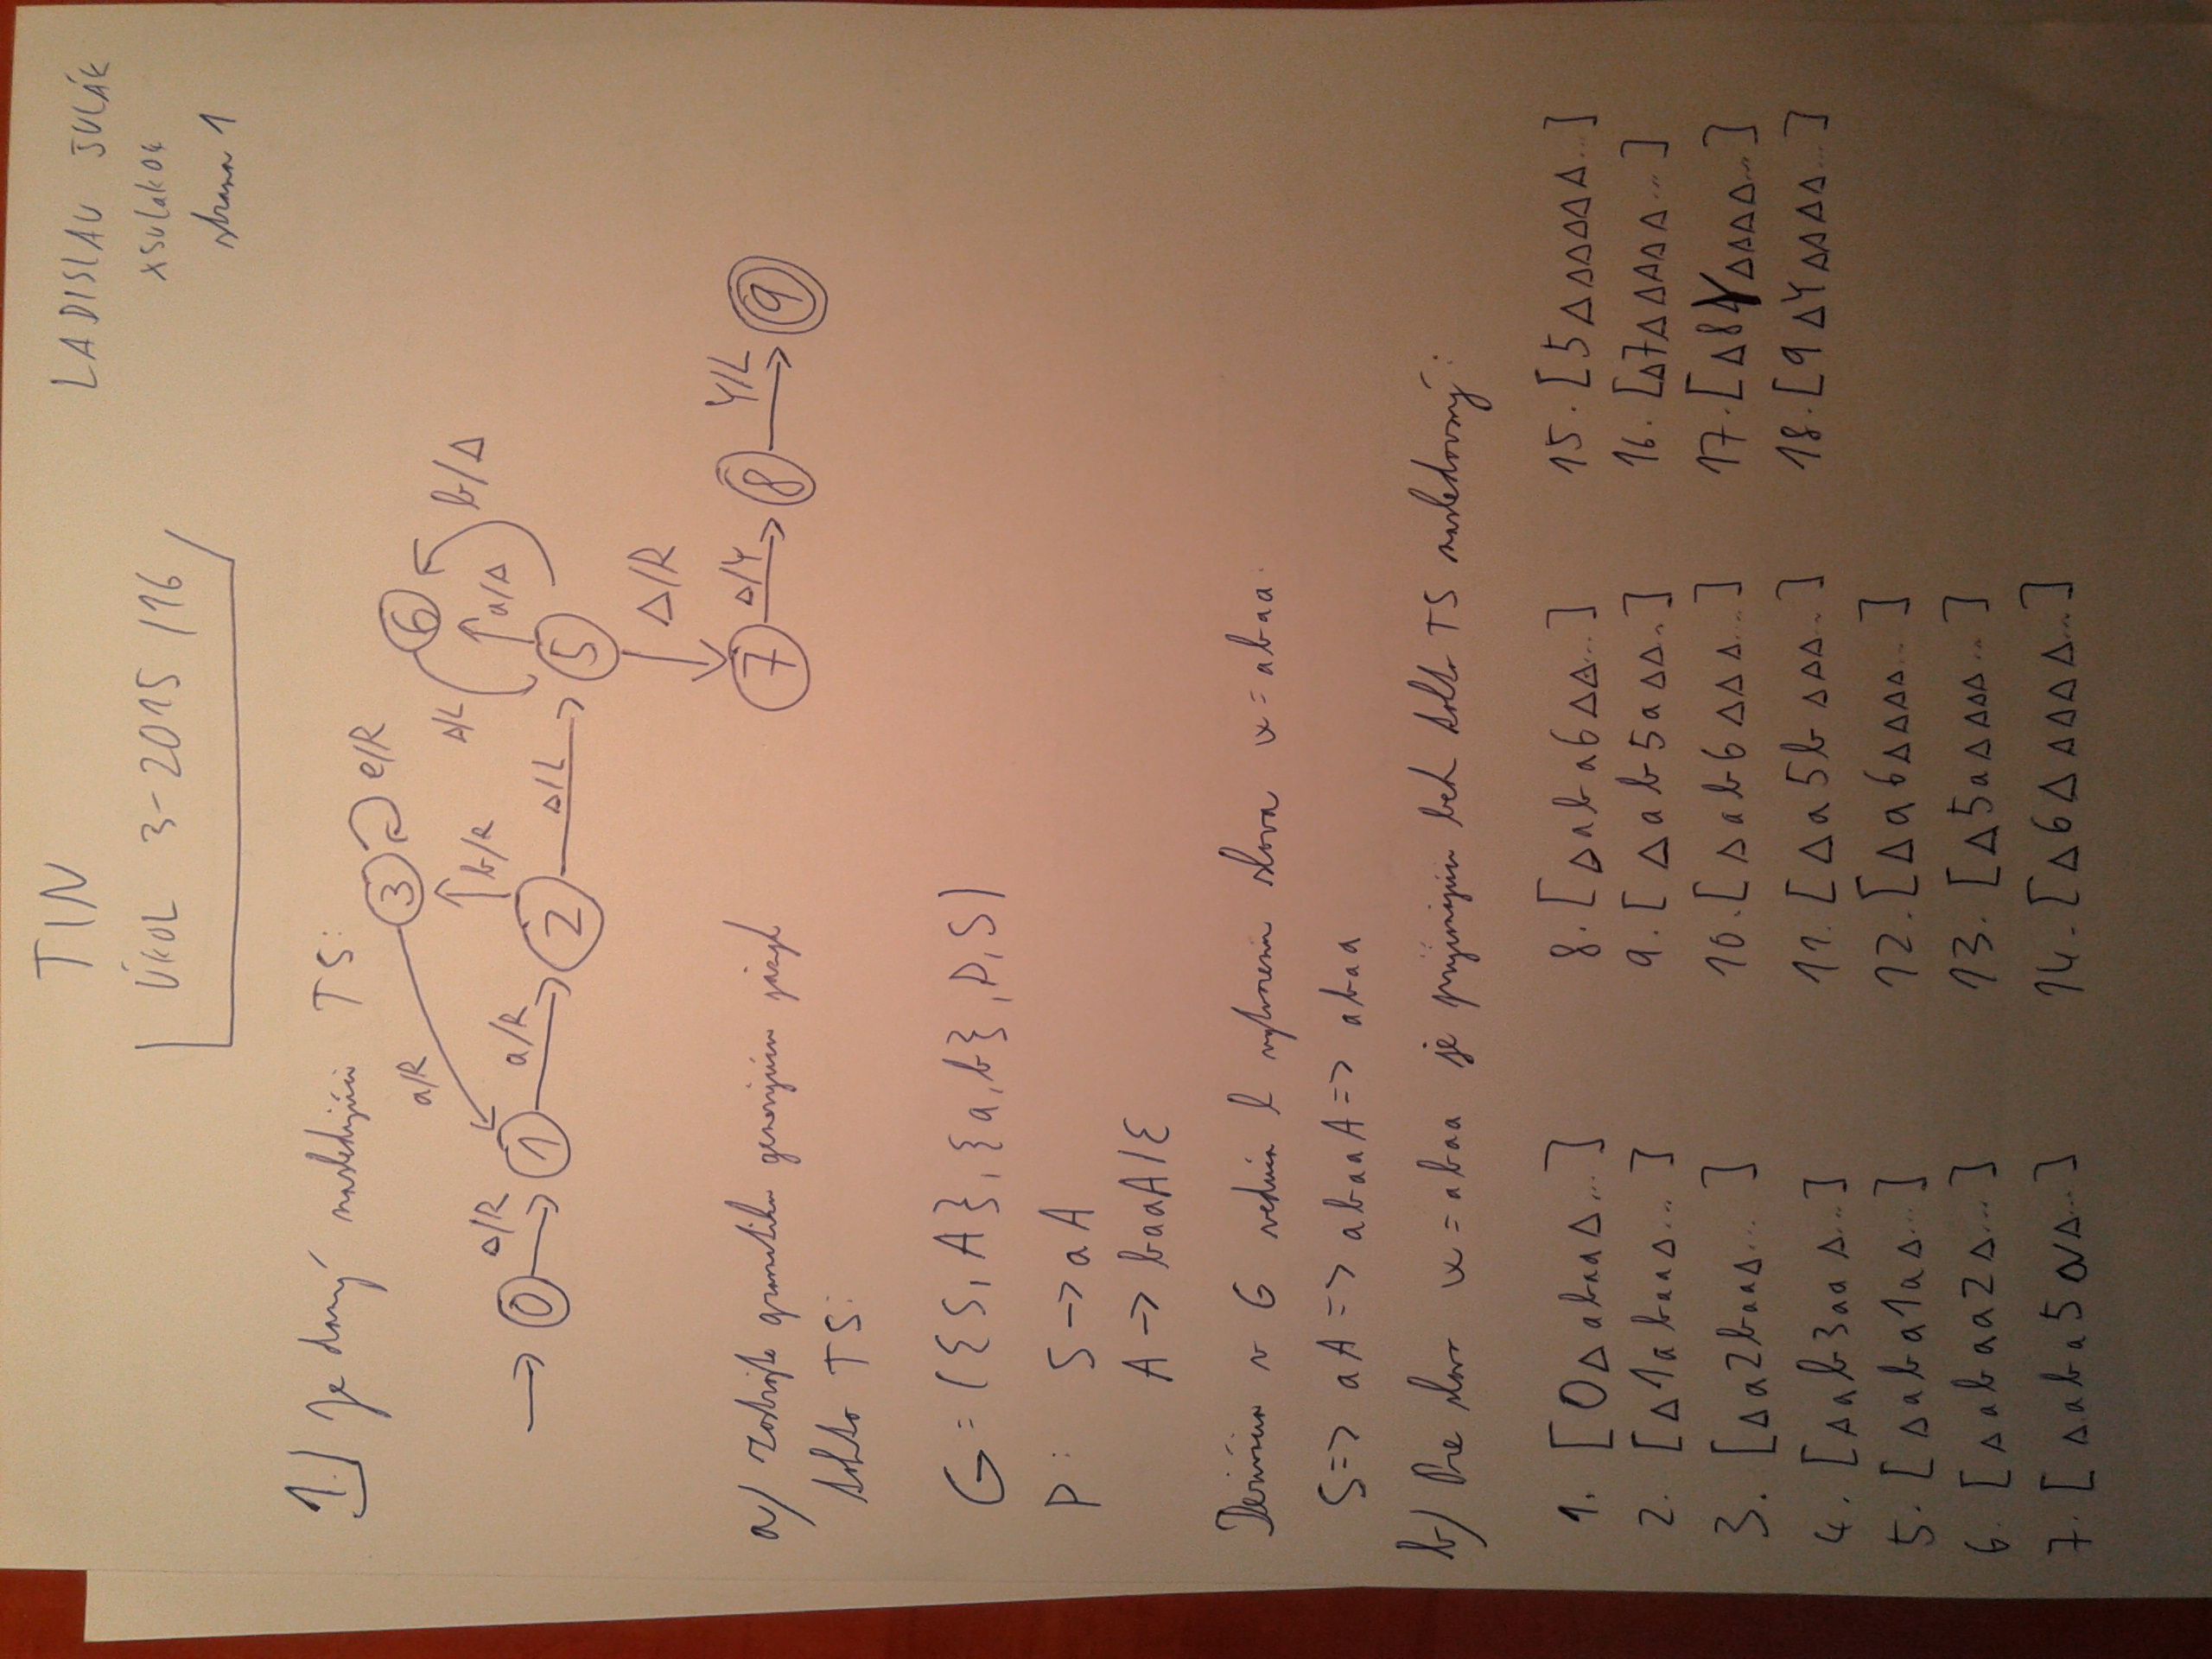 TIN
ÚKOL 3-2015/16
LADISLAV ŠULÁK
xsulak04
strana 1
1.) Je daný nasledujúci TS:
3 e/R
a/R
6
Δ/L
b/Δ
Δ/R
b/R
a/Δ
0 1 a/R 2 Δ/L 5
Δ/R
7 Δ/Y 8 Y/L 9
a) Zostrojte gramatiku generujúcu jazyk
tohto TS:
G = ({S, A}, {a, b}, P, S)
P: S -> aA
A -> baaA/ε
Derivácia v G vedúca k vytvoreniu slova x = abaa.
S => aA => abaaA => abaa
b) Pre slovo x = abaa je prijímajúci beh tohto TS nasledovný:
1. [0Δabaa Δ...]
2. [Δ1abaaΔ...]
3. [Δa2baaΔ...]
4. [Δab3aaΔ...]
5. [Δaba1aΔ...]
6. [Δabaa2Δ...]
7. [Δaba5aΔ...]
8. [Δaba6ΔΔ...]
9. [Δab5aΔΔ..]
10. [Δab6ΔΔΔ...]
11. [Δa5bΔΔΔ..]
12. [Δa6ΔΔΔΔ...]
13. [Δ5aΔΔΔΔ...]
14. [Δ6ΔΔΔΔΔ...]
15. [5ΔΔΔΔΔΔ...]
16. [Δ7ΔΔΔΔΔ...]
17. [Δ8YΔΔΔΔ...]
18. [9ΔYΔΔΔΔ...]